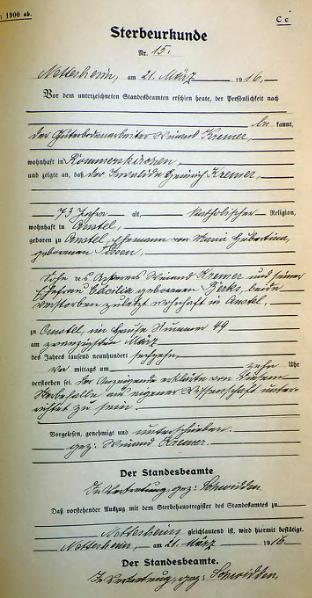 1900 ab.
C c
Sterbeurkunde
Nr. 15.
Nettesheim, am 21. März 1916.
Vor dem unterzeichneten Standesbeamten erschien heute, der Persönlichkeit nach
be kannt,
der Güterbodenarbeiter Winand Kremer,
wohnhaft in Rommerskirchen,
und zeigte an, daß der Invalide Heinrich Kremer,
73 Jahre alt, katholischer Religion,
wohnhaft in Anstel,
geboren zu Anstel, Ehemann von Maria Hubertina,
geborenen
Sohn des Ackerers Winand Kremer und seiner
Ehefrau Cäcilia geborenen beide
verstorben zuletzt wohnhaft in Anstel.
zu Anstel, im Hause Nummer 49
am zwanzigsten März
des Jahres tausend neunhundert sechzehn
vor mittags um zehn Uhr
verstorben sei. Der Anzeigende erklärte von diesem
Sterbefalle aus eigener Wissenschaft unter-
richtet zu sein.
Vorgelesen, genehmigt und unterschrieben.
gez: Winand Kremer.
Der Standesbeamte
In Vertretung, gez:
Daß vorstehender Auszug mit dem Sterbehauptregister des Standesamtes zu
Nettesheim gleichlautend ist, wird hiermit bestätigt.
Nettesheim, am 21. März 1916
Der Standesbeamte.
In Vertretung, gez: